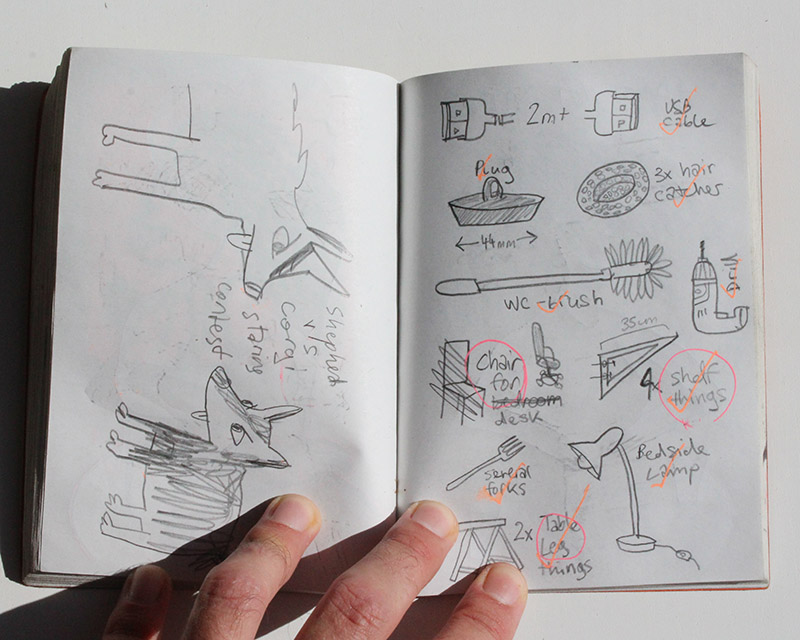 Shephed
v/s
Corgi
staring
contest
2m+
USB
cable
Plug
44mm
3x hair
catcher
WC-brush
35cm
Chair
for
bedroom
desk
4x shelf
things
several
forks
Bedside
Lamp
2x Table
Leg
things